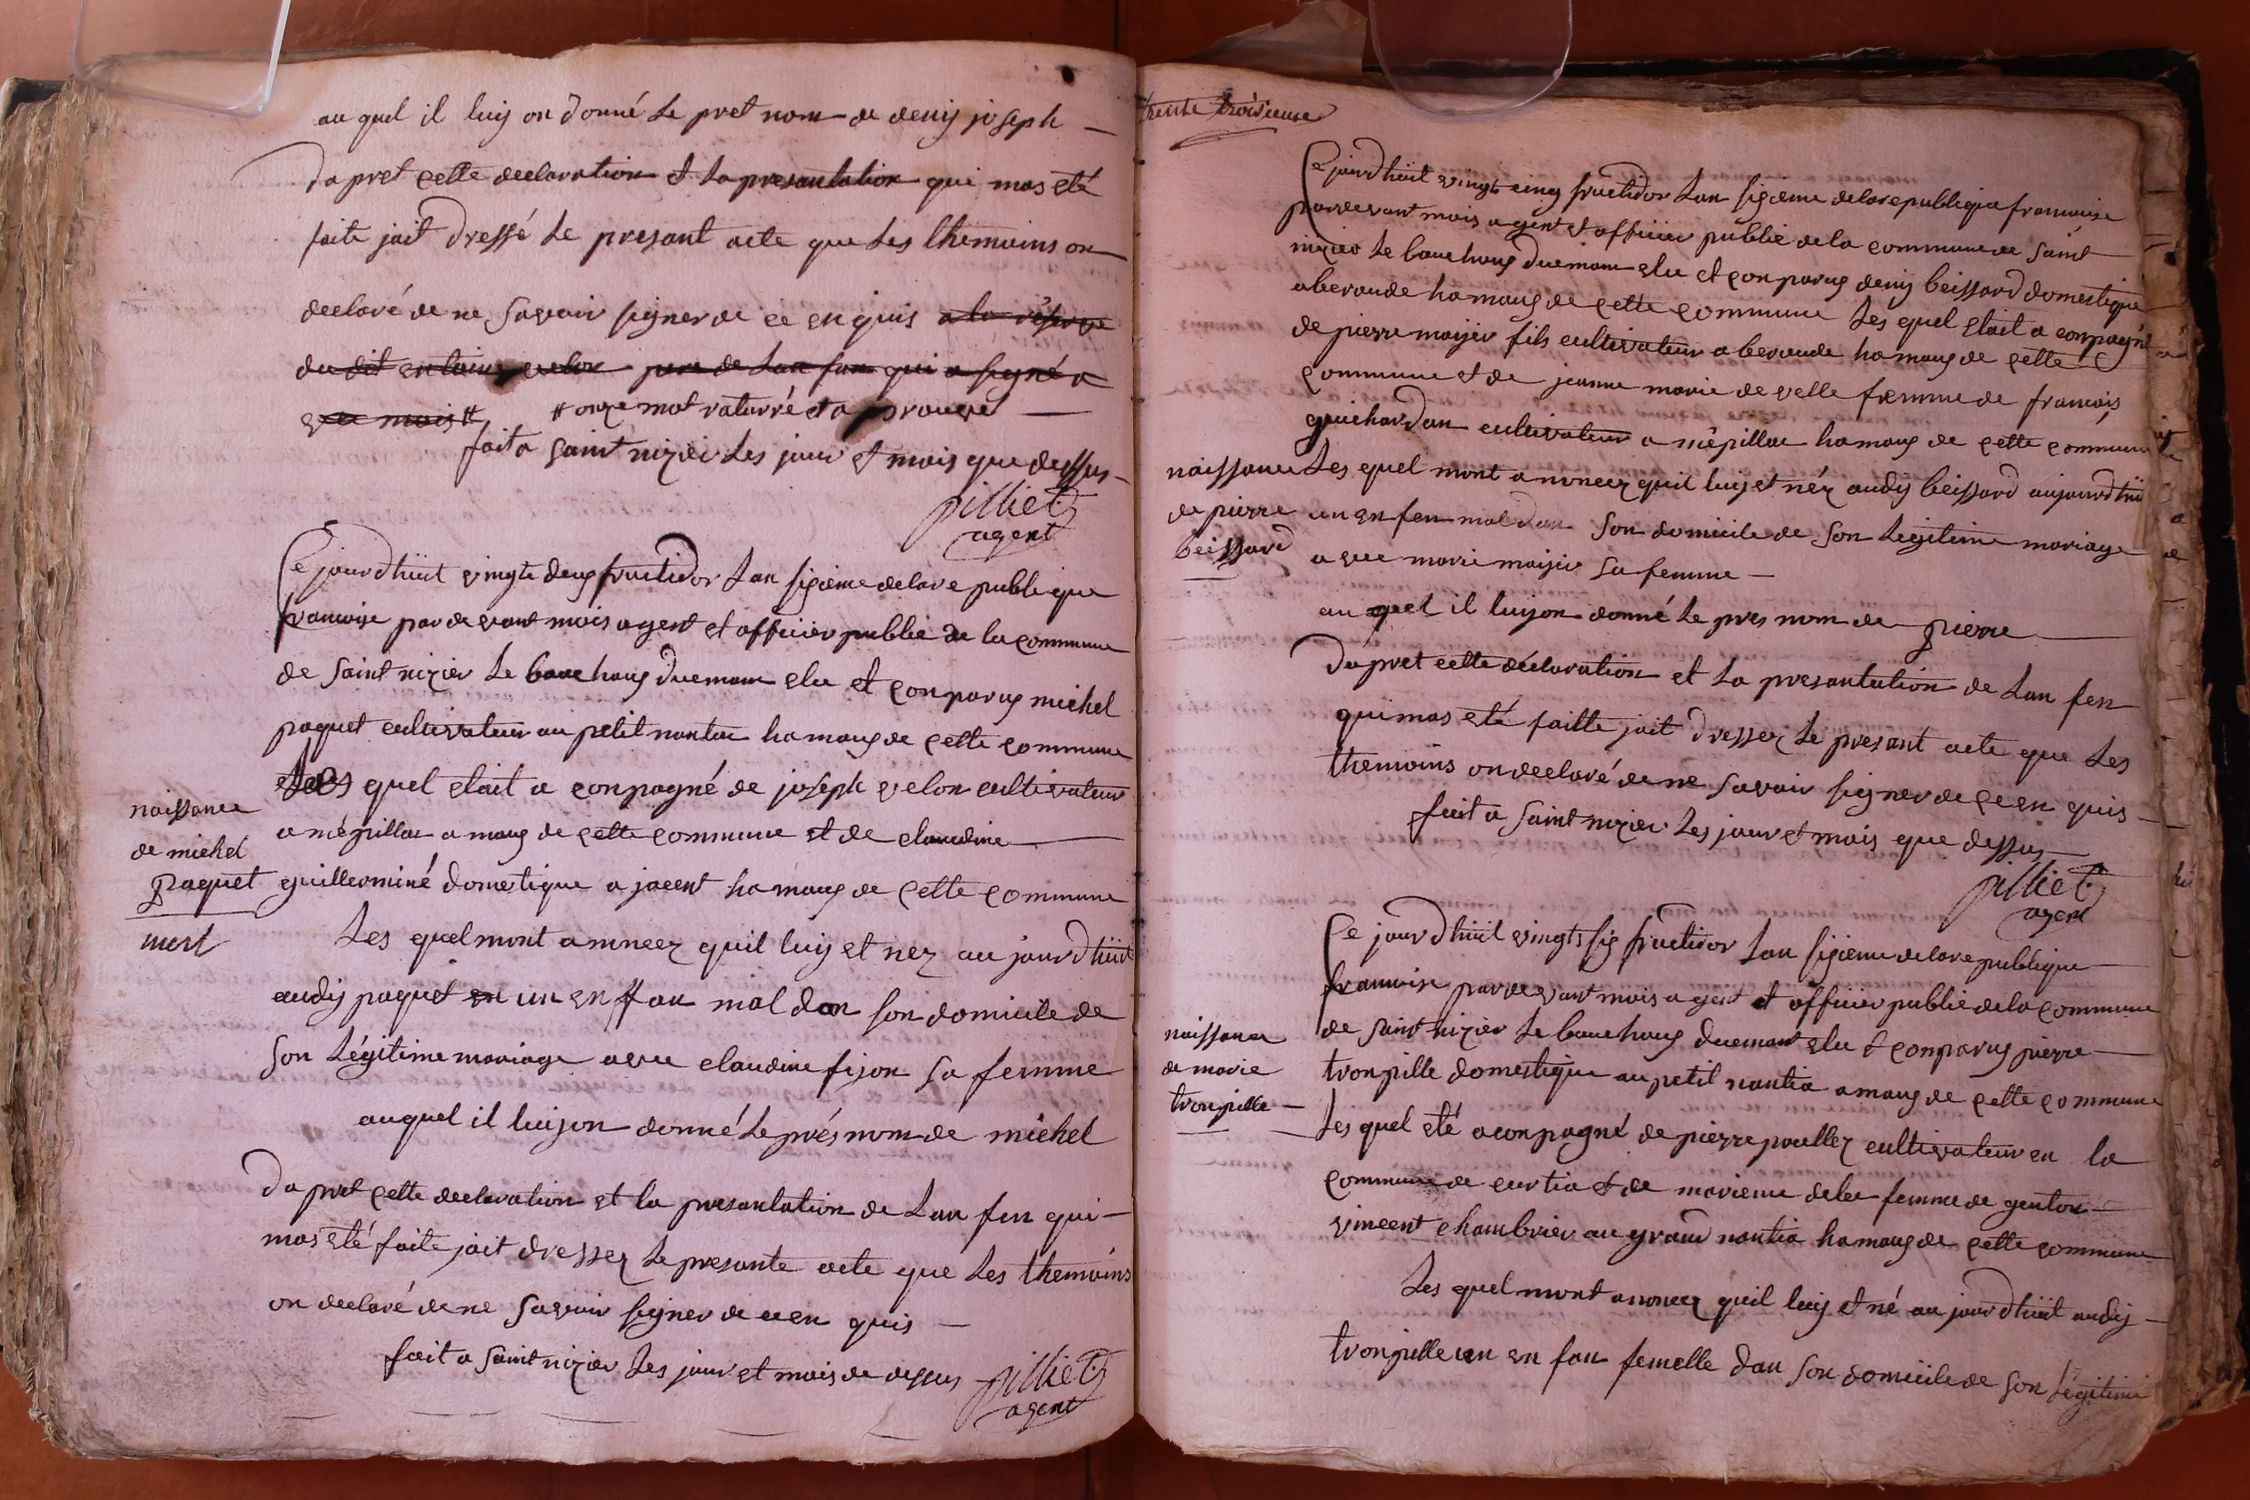 au quel il luy on donné le pret nom de deny joseph
dapret cette declaration et la presantation qui mas eté
faite jait dressé le presant acte que les themoins on
declaré de ne savoir signer de ce enquis a la reserve
du dit pere de lan fan qui a signé a
vec mois # # onze mot raturré et a prouvé
fait a saint nizier les jour et mois que dessus
pilliet
agent
Ce jourdhüit vingte deux fructidor lan sixieme de la republique
francoise par devant mois agent et officier public de la commune
de saint nizier le bouchoux duemant elu et conparus michel
paquet cultivateur au petit nantua hamaux de cette commune
les quel etait a conpagné de joseph velon cultivateur
a mépillat amaux de cette commune et de claudine
guilleminé domestique a jacent hamaux de cette commune
les quel mont anoncez quil luy et nez au jourdhüit
audis paquet un enffan mal dan son domicile de
son légitime mariage avec claudine fijon sa femme
auquel il luyon donné le prés nom de michel
naissance
de michel
paquet
mort
dapret cette declaration et la presantation de lan fen qui
mas eté faite jait dressez le presante acte que les themoins
on declaré de ne savoir signer de ce en quis
fait a saint nizier les jour et mois de dessus
pilliet
agent
trente troisieme
Ce jourdhüit vingt cinq fructidor lan sixieme de la republique francoise
pardevant mois agent et officier public de la commune de saint
nizier le bouchoux duemant elu et conparus denis beissard domestique
a beroude hamaux de cette commune les quel etait a conpagné
de pierre moyier fils cultivateur a beroude hamaux de cette
commune et de jeanne marie develle fremme de francois
guichardan cultivateur a mépillat hamaux de cette commune
les quel mont anoncez quil luy et néz audis beissard aujourdhüi
un enfen mal dan son domicile de son legitime mariage
avec marie moyier sa femme
naissance
de pierre
beissard
au quel il luyon donné le pres nom de pierre
dapret cette declaration et la presantation de lan fen
qui mas eté faitte jait dressez le presant acte que les
themoins on declaré de ne savoir signer de ce en quis
fait a saint nizier les jour et mois que dessus
pilliet
agent
Ce jourdhüit vingts six fructidor lan sixieme de la republique
francoise pardevant mois agent et officier public de la commune
de saint nizier le bouchoux duemant elu et conparus pierre
tronpille domestique au petit nantua amaux de cette commune
les quel eté aconpagné de pierre poullez cultivateur en la
commune de curtia et de marienne femme de genton
vincent chambrier au grand nantia hamaux de cette commune
naissance
de marie
tronpille
les quel mont anoncez quil luy et né au jourdhüit audis
tronpille un en fan femelle dan son domicile de son légitime